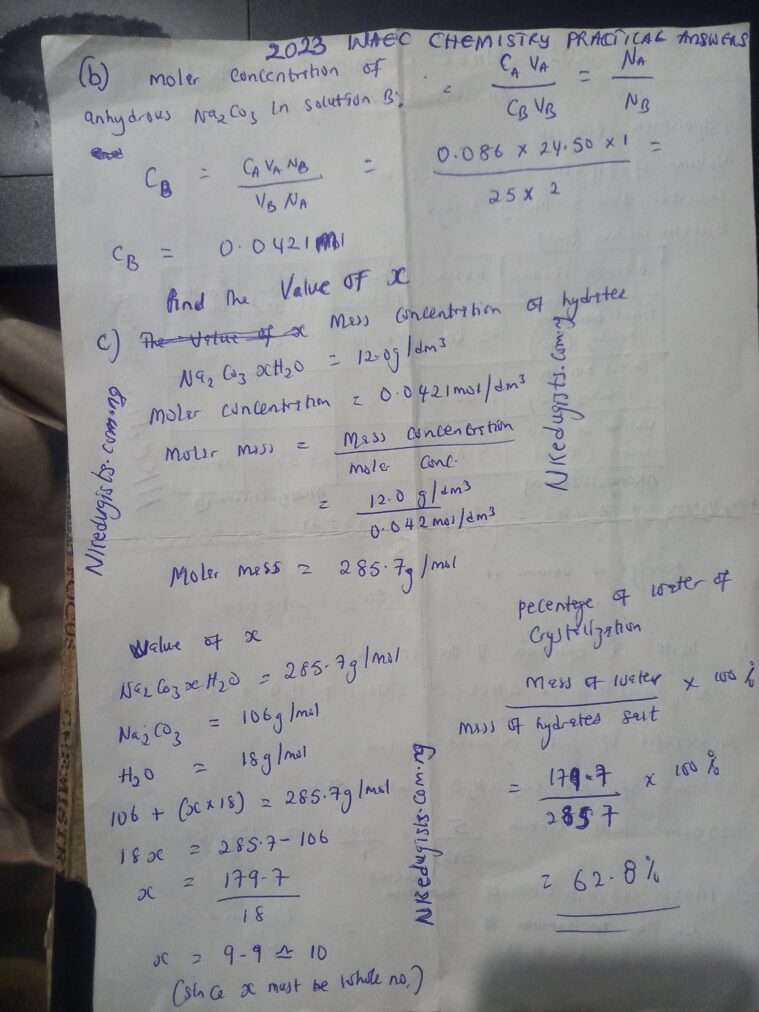 2023 WAEC CHEMISTRY PRACTICAL ANSWERS
(b) molar concentration of
anhydrous Na2CO3 in solution B:
= CA VA / CB VB = NA / NB
CB = CA VA NB / VB NA = 0.086 × 24.50 × 1 / 25 × 2 =
CB = 0.0421
find the Value of x
c) The Value of x Mass concentration of hydrated
Na2CO3 xH2O = 12.0g/dm3
Molar concentration = 0.0421mol/dm3
Molar mass = Mass concentration / molar conc.
= 12.0 g/dm3 / 0.042 mol/dm3
Molar mass = 285.7g/mol
Value of x
Na2CO3 xH2O = 285.7g/mol
Na2CO3 = 106g/mol
H2O = 18g/mol
106 + (x × 18) = 285.7g/mol
18x = 285.7 - 106
x = 179.7 / 18
x = 9.9 ≃ 10
(since x must be whole no.)
pecentage of water of
Crystallization
Mass of water / mass of hydrated salt × 100%
= 179.7 / 285.7 × 100%
= 62.8%
Nkedugists.com.ng
Nkedugists.com.ng
Nkedugists.com.ng